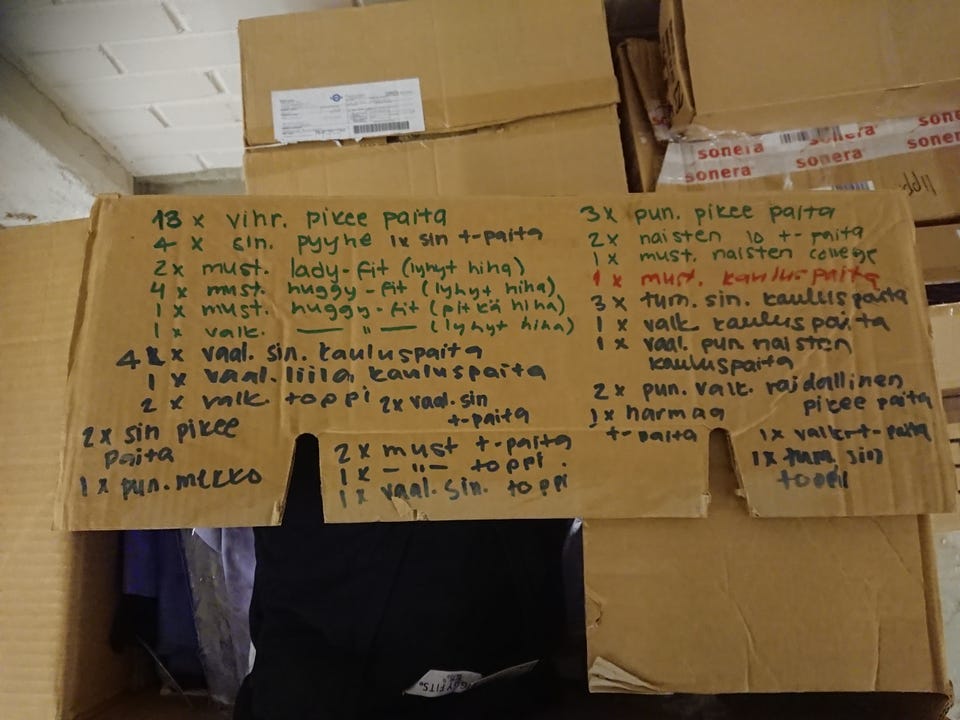 sonera
sonera
sonera
sonera
sonera
sonera
13 x vihr. pikee paita
4 x sin. pyyhe 1x sin t-paita
2x must. lady-fit (lyhyt hiha)
4 x must. huggy-fit (lyhyt hiha)
1 x must. huggy-fit (pitkä hiha)
1 x valk. — " — (lyhyt hiha)
4 x vaal. sin. kauluspaita
1 x vaal. liila kauluspaita
2 x valk. toppi
2x vaal. sin
t-paita
2x sin pikee
paita
1 x pun. mekko
2x must t-paita
1x — " — toppi.
1x vaal. sin. toppi
3x pun. pikee paita
2x naisten t-paita
1x must. naisten college
1x must. kauluspaita
3 x tum. sin. kauluspaita
1 x valk kauluspaita
1 x vaal. pun naisten
kauluspaita
2x pun. valk. raidallinen
pikee paita
1x harmaa
t-paita
1x valk. t-paita
1x tum. sin
toppi
GYFITS.